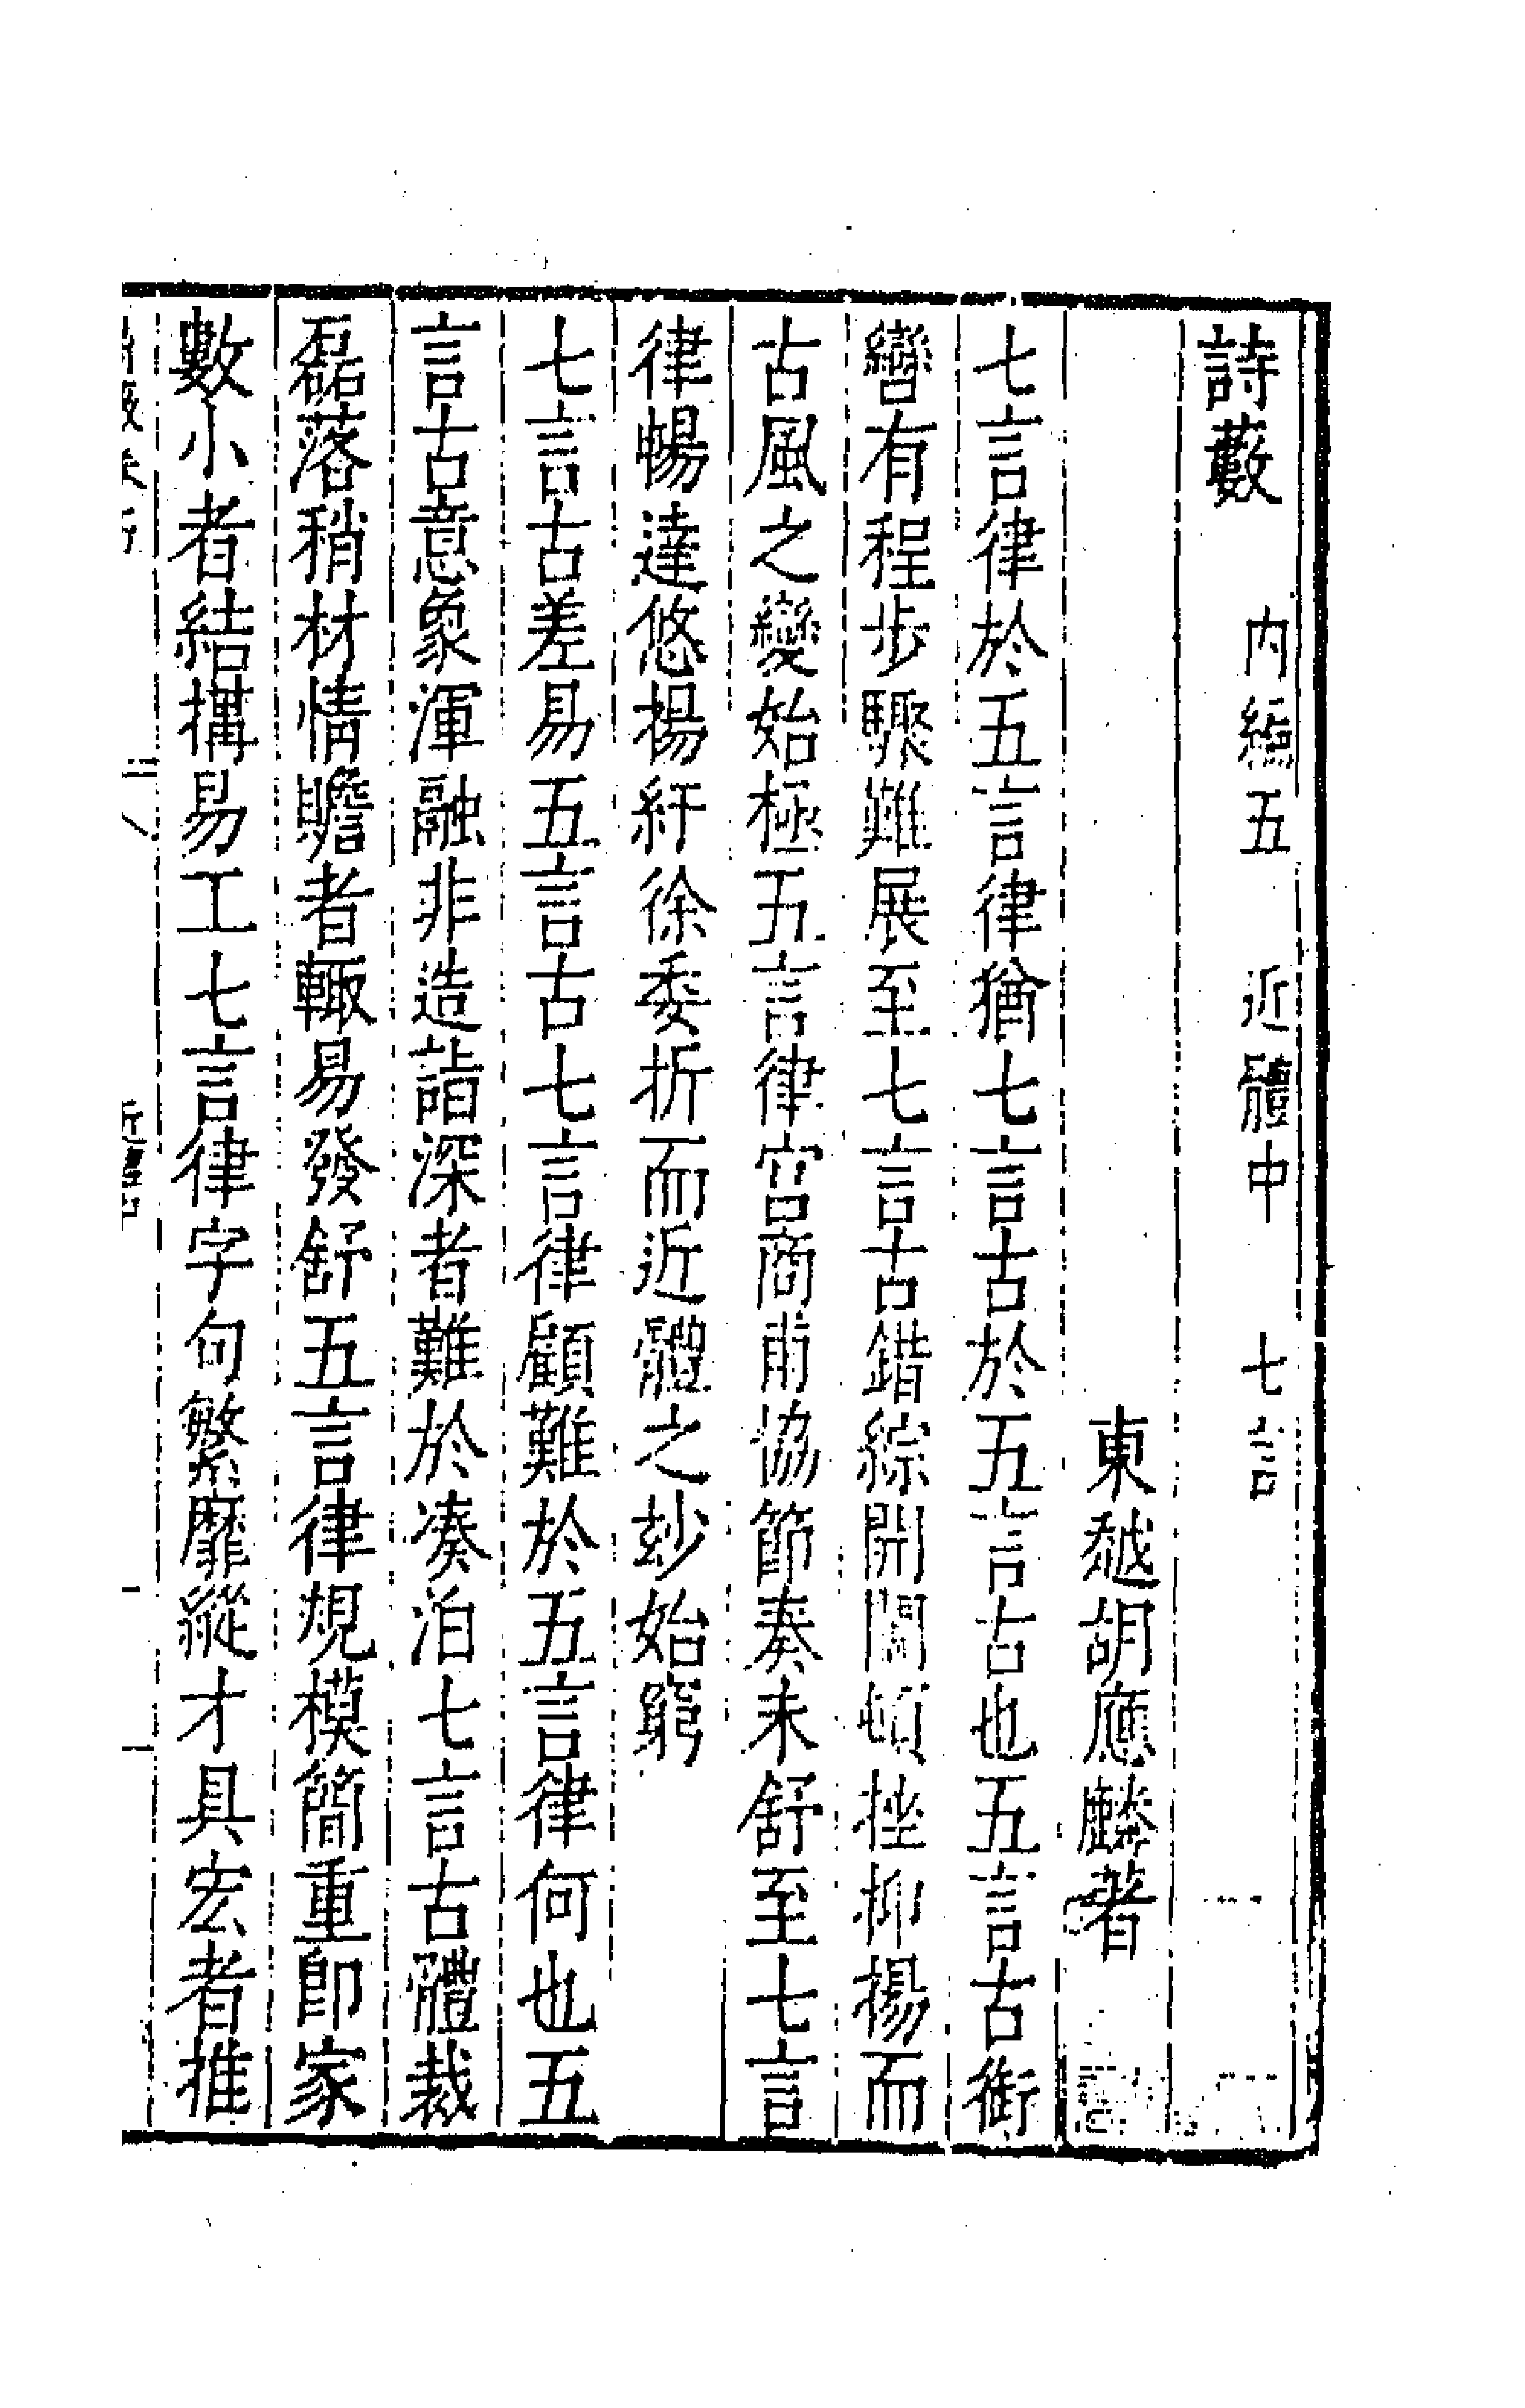 詩藪 内編五 近體中 七言
東越胡應麟著
七言律於五言律猶七言古於五言古也五言古銜
轡有程步驟難展至七言古錯綜開闔頓挫抑揚而
古風之變始極五言律宫商甫協節奏未舒至七言
律暢達悠揚紆徐委折而近體之妙始窮
七言古差易五言古七言律顧難於五言律何也五
言古意象渾融非造詣深者難於湊泊七言古體裁
磊落稍材情贍者輙易發舒五言律規模簡重即家
數小者結搆易工七言律字句繁靡縱才具宏者推